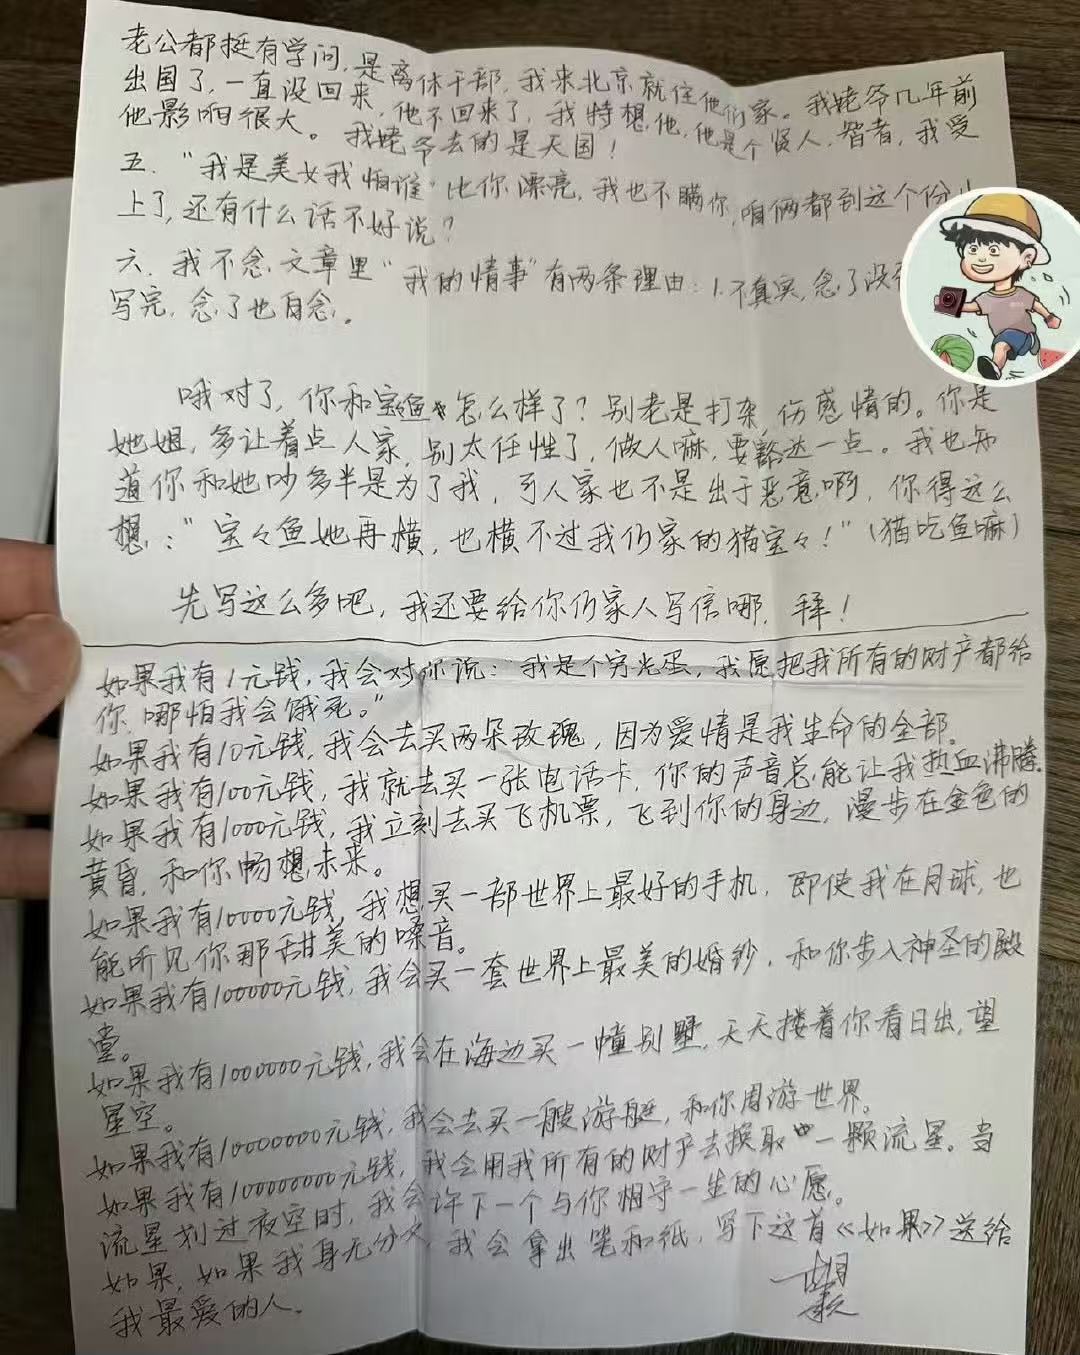 老公都挺有学问，是离休干部，我来北京就住他们家。我姥爷几年前
出国了，一直没回来，他不回来了，我特想他，他是个贤人，智者，我受
他影响很大。我姥爷去的是天国！
五．“我是美女我怕谁”比你漂亮，我也不瞒你，咱俩都到这个份
上了，还有什么话不好说？
六．我不念文章里“我的情事”有两条理由：1.不真实，念了没
写完，念了也白念。
哦对了，你和宝鱼怎么样了？别老是打杂，伤感情的。你是
她姐，多让着点人家，别太任性了，做人嘛，要豁达一点。我也知
道你和她吵多半是为了我，可人家也不是出于恶意啊，你得这么
想：“宝々鱼她再横，也横不过我们家的猫宝々！”（猫吃鱼嘛）
先写这么多吧，我还要给你们家人写信哪，拜！
如果我有1元钱，我会对你说：“我是个穷光蛋，我愿把我所有的财产都给
你，哪怕我会饿死。”
如果我有10元钱，我会去买两朵玫瑰，因为爱情是我生命的全部。
如果我有100元钱，我就去买一张电话卡，你的声音总能让我热血沸腾。
如果我有1000元钱，我立刻去买飞机票，飞到你的身边，漫步在金色的
黄昏，和你畅想未来。
如果我有10000元钱，我想买一部世界上最好的手机，即使我在月球，也
能听见你那甜美的嗓音。
如果我有100000元钱，我会买一套世界上最美的婚钞，和你步入神圣的殿
堂。
如果我有1000000元钱，我会在海边买一幢别墅，天天搂着你看日出，望
星空。
如果我有10000000元钱，我会去买一艘游艇，和你周游世界。
如果我有100000000元钱，我会用我所有的财产去换取一颗流星。当
流星划过夜空时，我会许下一个与你相守一生的心愿。
如果，如果我身无分文，我会拿出笔和纸，写下这首《如果》送给
我最爱的人。